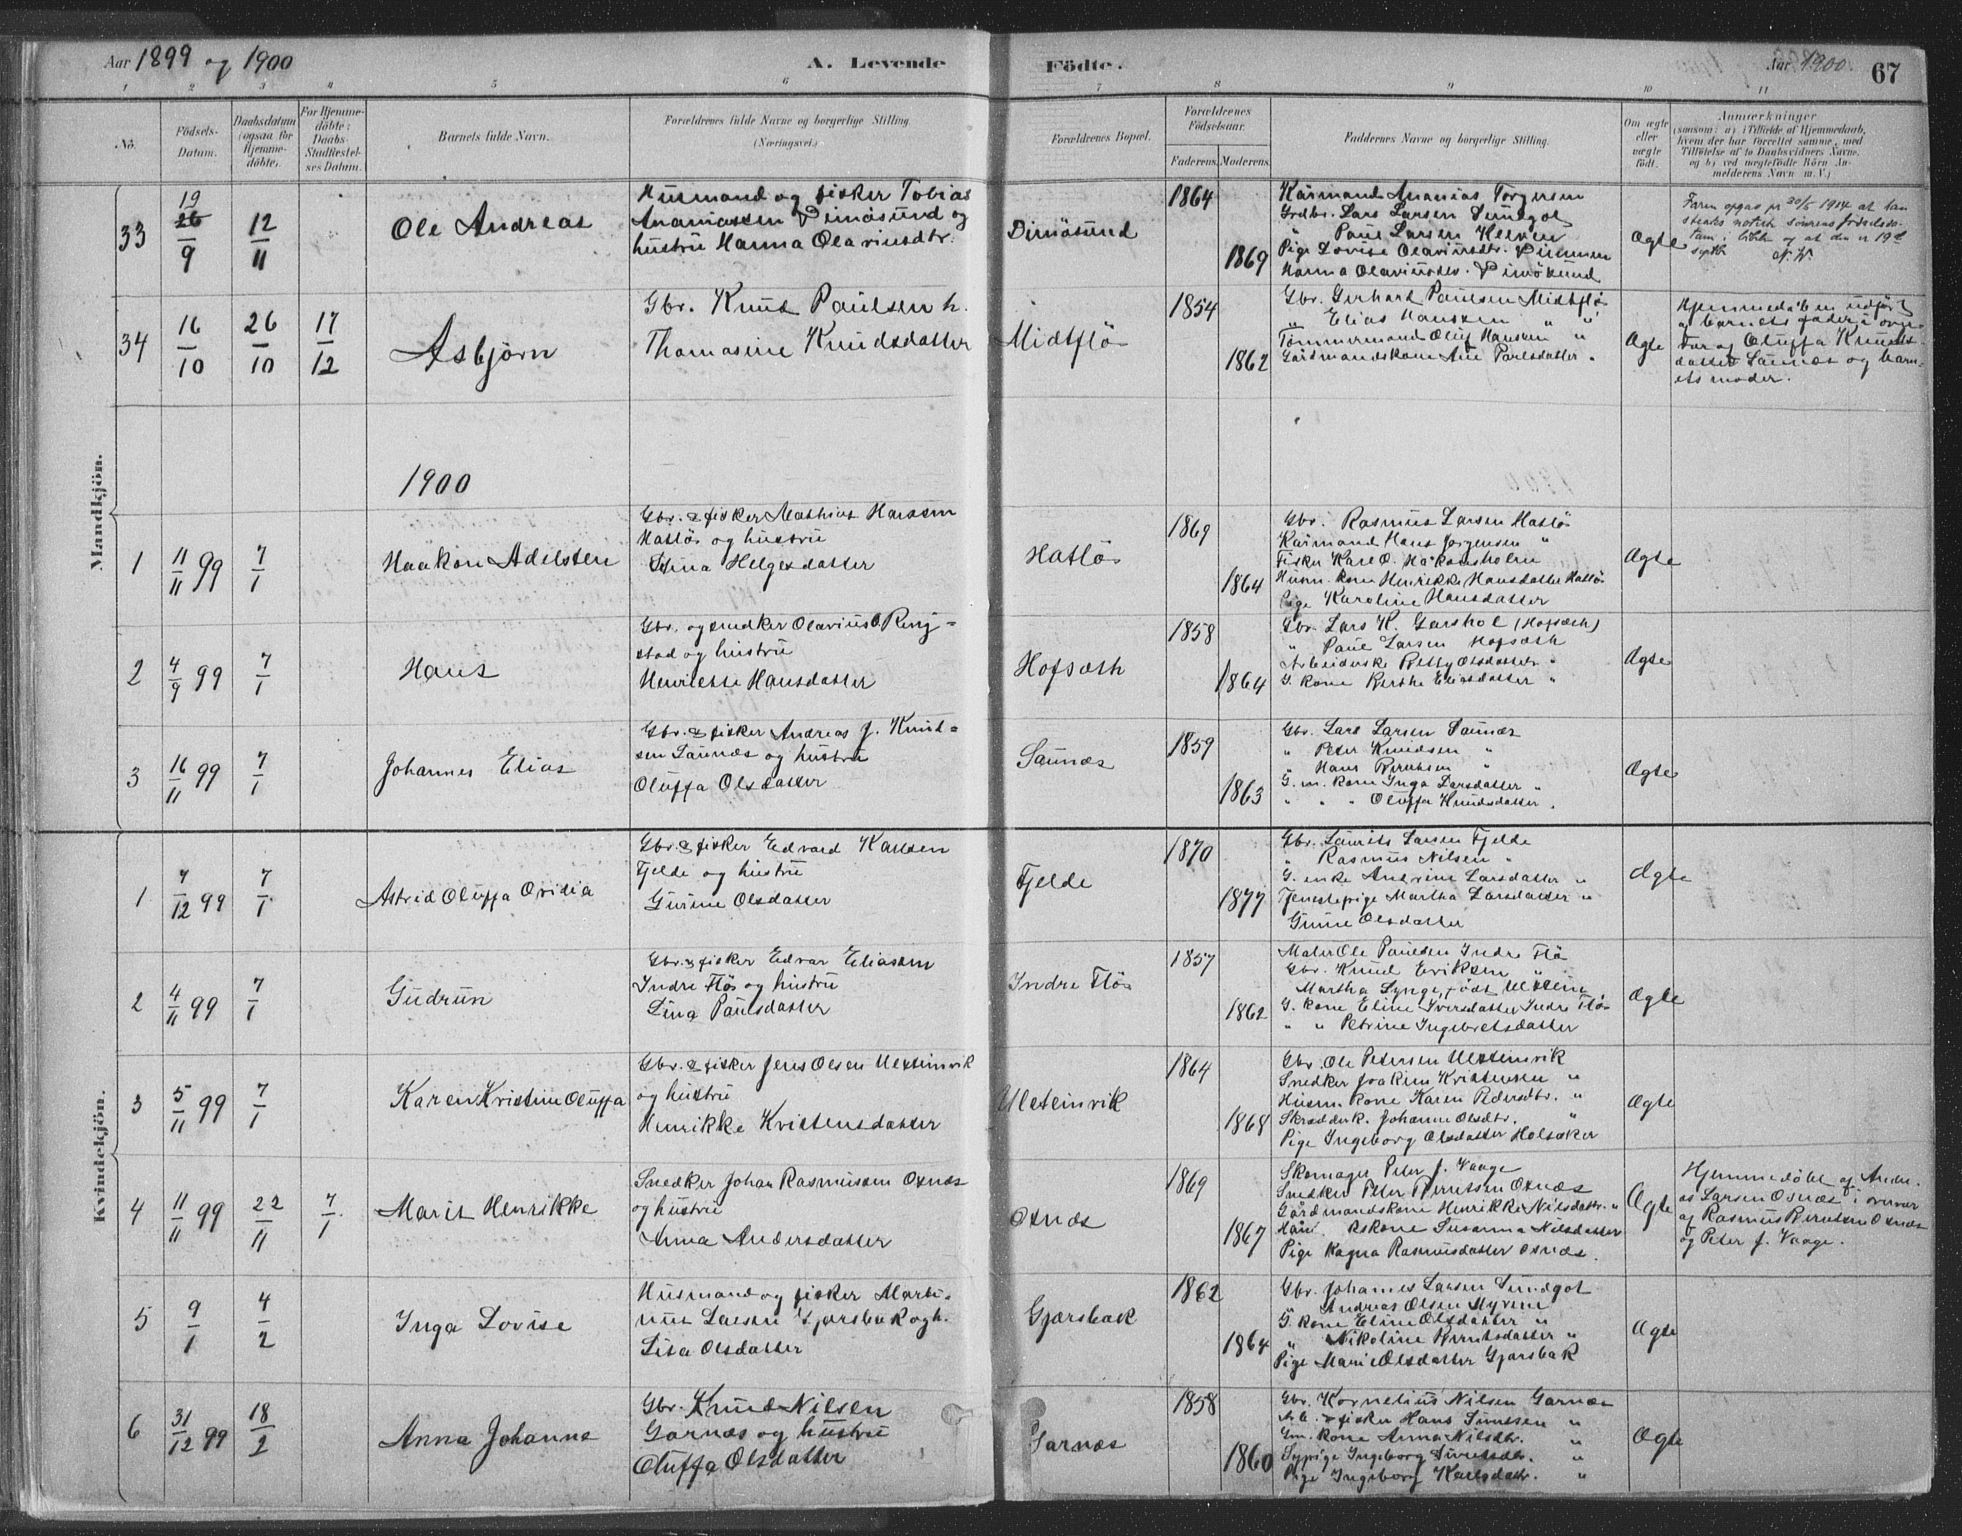 Aar 1899 og 1900
A. Levende
Födte.
Aar 1900.
67
1 2 3 4 5 6 7 8 9 10 11
No.
Födsels-
Datum.
Daabsdatum
(ogsaa for
Hjemme-
döbte).
For Hjemme-
döbte:
Daabs-
Stadfæstel-
ses Datum.
Barnets fulde Navn.
Forældrenes fulde Navne og borgerlige Stilling
(Næringsvei).
Forældrenes Bopæl.
Forældrenes
Födselsaar.
Faderens.
Moderens.
Faddernes Navne og borgerlige Stilling.
Om ægte
eller
uægte
födt.
Anmærkninger
(saasom: a) i Tilfælde af Hjemmedaab,
hvem der har forrettet samme, med
Tilföielse af to Daabsvidners Navne,
og b) ved uægtefödte Börn An-
melderens Navn m. V.)
Mandkjön.
33
19
26
9
12
11
Ole Andreas
Husmand og fisker Tobias
Ananiassen Dimösund og
hustru Hanna Olaviusdtr.
Dimösund
1864
1869
Kårmand Ananias Torgersen
Grdbr. Lars Larsen Sundgot
" Paul Larsen Kleven
Pige Lovise Olaviusdtr.
Hanna Olaviusdtr. Dimösund
Ægte
34
16
10
26
10
17
12
Asbjörn
Gbr. Knud Paulsen h.
Thomasine Knudsdatter
Midtflö
1854
1862
Gbr. Gerhard Paulsen Midtflö
" Elias Hansen " "
Tömmermand Oluf Hansen "
Gårdmandskone Ane Paulsdatter "
Ægte
Hjemmedåben udfört
af barnets fader i over-
vær af Oluffa Knuds-
datter Saunæs og barn-
ets moder.
1900
1
11
11 99
7
1
Haakon Adelsten
Gbr. & fisker Mathias Hansen
Hatlö og hustru
Stina Helgesdatter
Hatlö
1869
1864
Gbr. Rasmus Larsen Hatlö
Kårmand Hans Jörgensen "
Fisker Karl O. Håkonsholm
Husm. kone Henrikke Hansdatter Hatlö
Pige Karoline Hansdatter
Ægte
2
4
9 99
7
1
Hans
Gbr. og snedker Olavius O. Ring-
stad og hustru
Henriette Hansdatter
Hofsæth
1858
1864
Gbr. Lars K. Garshol (Hofsæth)
" Paul Larsen Hofsæth
Arbeiderske Betty Olsdatter "
G. kone Berthe Eliasdatter "
Ægte
3
16
11 99
7
1
Johannes Elias
Gbr. & fisker Andreas J. Knud-
sen Saunæs og hustru
Oluffa Olsdatter
Saunæs
1859
1863
Gbr. Lars Larsen Saunæs
" Peter Knudsen "
" Hans Berntsen "
G. m. kone Inga Larsdatter "
" " " Oluffa Knudsdatter "
Ægte
Kvindekjön.
1
7
12 99
7
1
Astrid Oluffa Ovidia
Gbr. & fisker Edvard Karlsen
Fjelde og hustru
Gurine Olsdatter
Fjelde
1870
1877
Gbr. Laurits Larsen Fjelde
" Rasmus Nilsen "
G. enke Andrine Larsdatter "
Tjenestepige Martha Larsdatter "
Gunne Olsdatter
Ægte
2
4
11 99
7
1
Gudrun
Gbr. & fisker Edvar Eliassen
Indre Flö og hustru
Lina Paulsdatter
Indre Flö
1857
1862
Maler Ole Paulsen Indre Flö
Gbr. Knud Eriksen "
Martha Synge, födt Ulstein
G. kone Eline Iversdatter Indre Flö
" " Petrine Ingebretsdatter
Ægte
3
5
11 99
7
1
Karen Kristine Oluffa
Gbr. & fisker Jens Olsen Ulsteinvik
og hustru
Henrikke Kristensdatter
Ulsteinvik
1864
1868
Gbr. Ole Petersen Ulsteinvik
Snedker Joakim Kristensen "
Husm. kone Karen Pedersdtr. "
Skrædderk. Johanne Olsdtr. "
Pige Ingeborg Olsdatter Holsæker
Ægte
4
11
11 99
22
11
7
1
Marit Henrikke
Snedker Johan Rasmussen Oxnæs
og hustru
Anna Andersdatter
Oxnæs
1869
1867
Skomager Peter J. Vaage
Snedker Peter Berntsen Oxnæs
Gårdmandskone Henrikke Nilsdatter "
Susanna Nilsdatter
Pige Ragna Rasmusdatter Oxnæs.
Ægte
Hjemmedöbt af Andre-
as Larsen Oxnæs i overvær
af Rasmus Berntsen Oxnæs
og Peter J. Vaage.
5
9
1
4
2
Inga Lovise
Husmand og fisker Marti-
nus Larsen Gjærsbak og h.
Lisa Olsdatter
Gjærsbak
1862
1864
Gbr. Johannes Larsen Sundgot
" Andreas Olsen Myrene
G. kone Eline Olsdatter "
" Nikoline Berntsdatter "
Pige Marie Olsdatter Gjærsbak
Ægte
6
31
12 99
18
2
Anna Johanna
Gbr. Knud Nilsen
Garnæs og hustru
Oluffa Olsdatter
Garnæs
1858
1860
Gbr. Kornelius Nilsen Garnæs
Arb. & fisker Hans Knutsen "
Gm. kone Anna Nilsdtr. "
Sypige Ingeborg Sivertsdtr. "
Pige Ingeborg Karlsdatr. "
Ægte